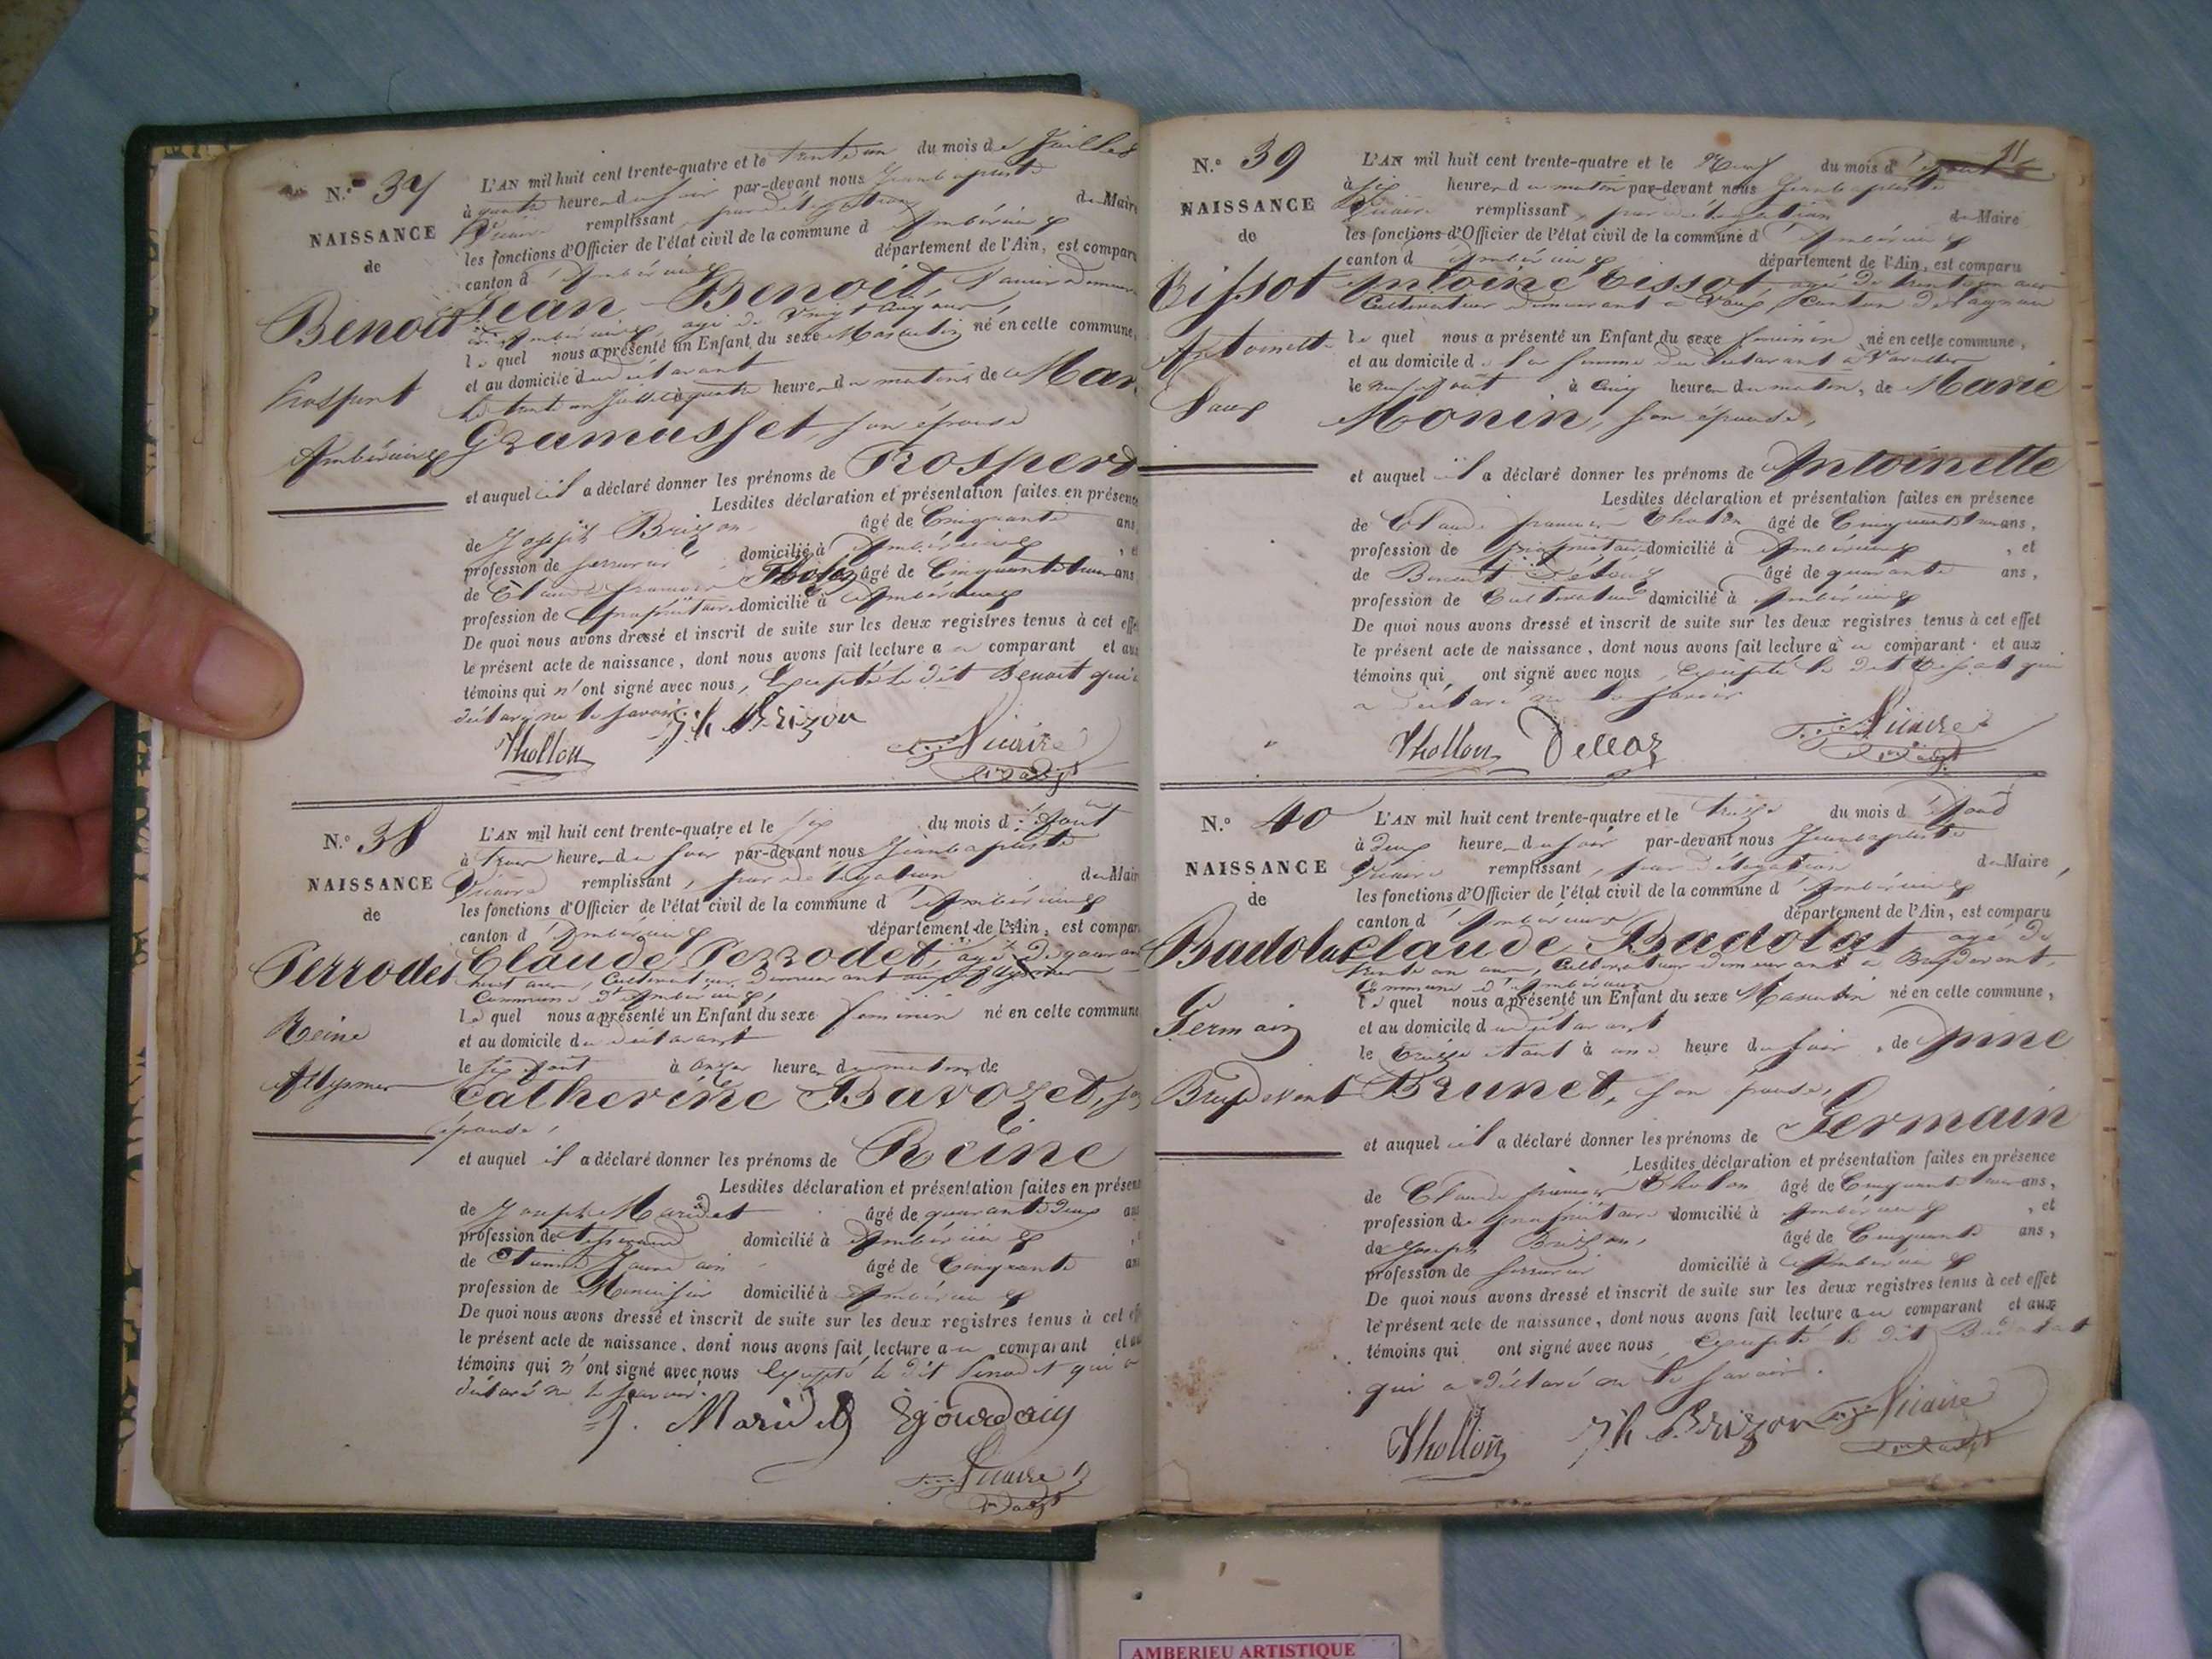 N.° 37
NAISSANCE
de
Benoit
Prospert
Ambérieux
L'AN mil huit cent trente-quatre et le trente un du mois de Juillet
à quatre heures du soir par-devant nous Jeanbaptiste
Vicaire remplissant, par délégation du Maire
les fonctions d'Officier de l'état civil de la commune d'Ambérieux
canton d'Ambérieux département de l'Ain, est comparu
Jean Benoit,
Ambérieux, agé de vingt cinq ans,
le quel nous a présenté un Enfant du sexe Masculin né en cette commune,
et au domicile du déclarant
le trente un Juillet à quatre heures du matin, de Mar
Gramusset, son épouse
et auquel il a déclaré donner les prénoms de Prosperd
Lesdites déclaration et présentation faites en présence
de Joseph Brizon âgé de Cinquante ans,
profession de serrurier domicilié à Ambérieux, et
de Claude françois Tholon âgé de Cinquante trois ans
profession de propriétaire domicilié à Ambérieux
De quoi nous avons dressé et inscrit de suite sur les deux registres tenus à cet effet
le présent acte de naissance, dont nous avons fait lecture au comparant et aux
témoins qui n'ont signé avec nous, Excepté le dit Benoit qui a
déclaré ne le savoir
Jh Brizon
Thollon
Vicaire
N.° 38
NAISSANCE
de
Perrodet
Reine
Allymes
L'AN mil huit cent trente-quatre et le six du mois d'Aout
à trois heures du soir par-devant nous Jeanbaptiste
Vicaire remplissant, par délégation du Maire
les fonctions d'Officier de l'état civil de la commune d'Ambérieux
canton d'Ambérieux département de l'Ain, est comparu
Claude Perrodet, agé de quarante
huit ans, Cultivateur demeurant aux Allymes
Commune d'Ambérieux,
le quel nous a présenté un Enfant du sexe féminin né en cette commune
et au domicile du déclarant
le six Aout à onze heures du matin, de
Catherine Bavozet, son
épouse,
et auquel il a déclaré donner les prénoms de Reine
Lesdites déclaration et présentation faites en présence
de Joseph Maridet âgé de quarante deux ans
profession de tisserand domicilié à Ambérieux
de Etienne Jourdain âgé de Cinquante ans
profession de Menuisier domicilié à Ambérieux
De quoi nous avons dressé et inscrit de suite sur les deux registres tenus à cet effet
le présent acte de naissance, dont nous avons fait lecture au comparant et aux
témoins qui n'ont signé avec nous Excepté le dit Perrodet qui a
déclaré ne le savoir.
J. Maridet Ejourdain
Vicaire
11
N.° 39
NAISSANCE
de
Tissot
Antoinette
Vaux
L'AN mil huit cent trente-quatre et le Neuf du mois d'Aout
à six heures du matin par-devant nous Jeanbaptiste
Vicaire remplissant, par délégation du Maire
les fonctions d'Officier de l'état civil de la commune d'Ambérieux
canton d'Ambérieux département de l'Ain, est comparu
Antoine Tissot, agé de trente un ans
Cultivateur demeurant à Vaux, Canton de Lagnieu
le quel nous a présenté un Enfant du sexe féminin né en cette commune,
et au domicile de la femme du déclarant à
le neuf Aout à cinq heures du matin, de Marie
Monin, son épouse,
et auquel il a déclaré donner les prénoms de Antoinette
Lesdites déclaration et présentation faites en présence
de Claude françois Tholon âgé de Cinquante trois ans,
profession de propriétaire domicilié à Ambérieux, et
de Benoit âgé de quarante ans,
profession de Cultivateur domicilié à Ambérieux
De quoi nous avons dressé et inscrit de suite sur les deux registres tenus à cet effet
le présent acte de naissance, dont nous avons fait lecture au comparant et aux
témoins qui ont signé avec nous, Excepté le dit Tissot qui
a déclaré ne le savoir
Thollon
Vicaire
N.° 40
NAISSANCE
de
Badolat
Germain
Breydevent
L'AN mil huit cent trente-quatre et le treize du mois d'Aout
à deux heures du soir par-devant nous Jeanbaptiste
Vicaire remplissant, par délégation du Maire,
les fonctions d'Officier de l'état civil de la commune d'Ambérieux
canton d'Ambérieux département de l'Ain, est comparu
Claude Badolat agé de
trente un ans, Cultivateur demeurant à Breydevent,
Commune d'Ambérieux
le quel nous a présenté un Enfant du sexe Masculin né en cette commune,
et au domicile du déclarant
le treize Aout à une heure du soir, de
Brunet, son épouse,
et auquel il a déclaré donner les prénoms de Germain
Lesdites déclaration et présentation faites en présence
de Claude françois Tholon âgé de Cinquante trois ans,
profession de propriétaire domicilié à Ambérieux, et
de Joseph Brizon, âgé de Cinquante ans,
profession de serrurier domicilié à Ambérieux
De quoi nous avons dressé et inscrit de suite sur les deux registres tenus à cet effet
le présent acte de naissance, dont nous avons fait lecture au comparant et aux
témoins qui ont signé avec nous Excepté le dit Badolat
qui a déclaré ne le savoir.
Thollon Jh Brizon Vicaire
AMBERIEU ARTISTIQUE